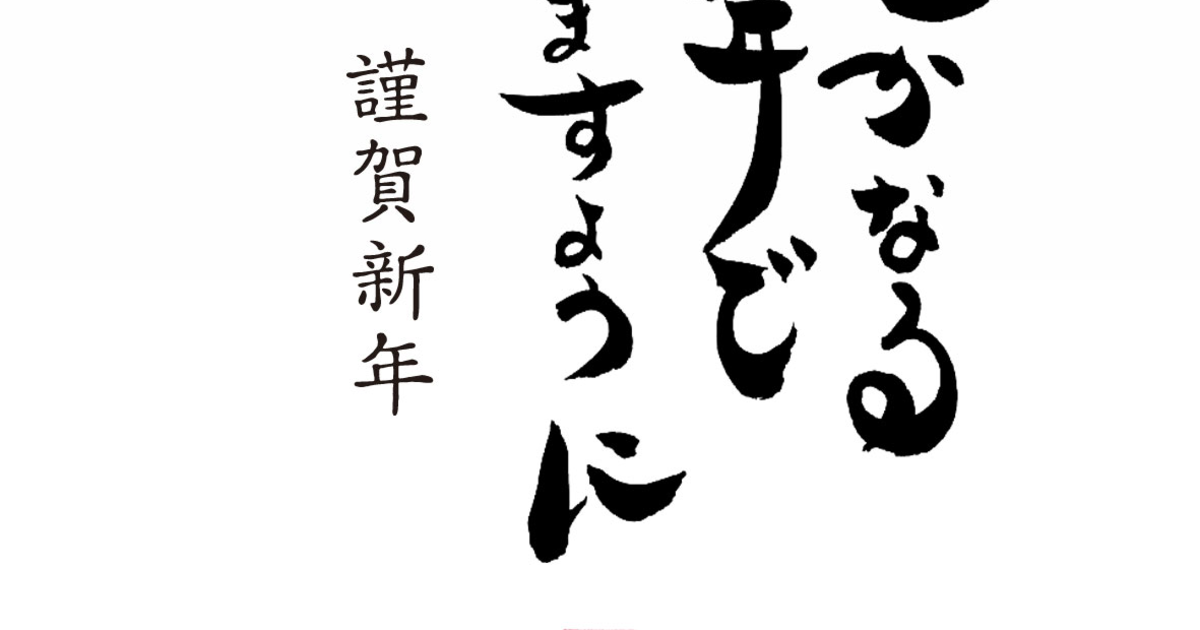 かなる
年で
ますように
謹賀新年